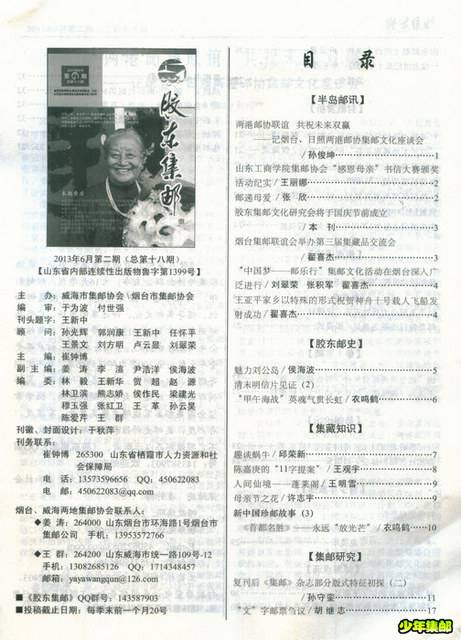 胶东集邮
2013年6月第二期（总第十八期）
【山东省内部连续性出版物鲁字第1399号】
主　办：威海市集邮协会 烟台市集邮协会
编　审：于为波　付世强
刊头题字：王新中
顾　问：孙光辉　郭润康　王新中　任怀平
王景文　刘方明　卢云显　刘翠荣
主　编：崔钟博
副主编：姜　涛　李　渲　尹浩洋　侯海波
编　委：林　毅　王新华　贺　超　赵　源
林卫滨　熊志娇　侯作民　梁建光
穆玉强　张红卫　王　革　孙云昊
陈爱芹　王　群
刊徽、封面设计：于秋萍
刊务联系：
崔钟博　265300　山东省栖霞市人力资源和社
会保障局
电　话：13573596656　QQ：450622083
电　邮：450622083@qq.com
烟台、威海两地集邮协会联系人：
◆姜　涛：264000　山东烟台市环海路1号烟台市
集邮公司　手机：13953572766
◆王　群：264200　山东威海市统一路109号-12
手机：13082685126　QQ：1714348457
邮箱：yayawangqun@126.com
■《胶东集邮》QQ群号：143587903
■投稿截止日期：每季末前一个月20号
目　录
【半岛邮讯】
两港邮协联谊　共祝未来双赢
——记烟台、日照两港邮协集邮文化座谈会
/孙俊坤……1
山东工商学院集邮协会“感恩母亲”书信大赛颁奖
活动纪实/王丽娜……2
邮递母爱/张　欣……2
胶东集邮文化研究会将于国庆节前成立
/本　刊……3
烟台集邮联谊会举办第三届集藏品交流会
/翟喜杰……3
“中国梦——邮乐行”集邮文化活动在烟台深入广
泛进行/刘翠荣　张积军　翟喜杰……4
王亚平家乡以特殊的形式祝贺神舟十号载人飞船发
射成功/翟喜杰……4
【胶东邮史】
魅力刘公岛/侯海波……5
清末明信片见证（2）
“甲午海战”英魂气贯长虹/衣鸣鹤……6
【集藏知识】
趣谈蜗牛/邱荣新……7
陈嘉庚的“11字提案”/王观宇……8
人间仙境——蓬莱阁/王明雪……9
母亲节之花/许志宇……9
新中国珍邮故事（3）
《首都名胜》——永远“放光芒”/衣鸣鹤……10
【集邮研究】
复刊后《集邮》杂志部分版式特征初探（二）
/孙守窒……11
“文”字邮票刍议/胡继志……17
少年集邮